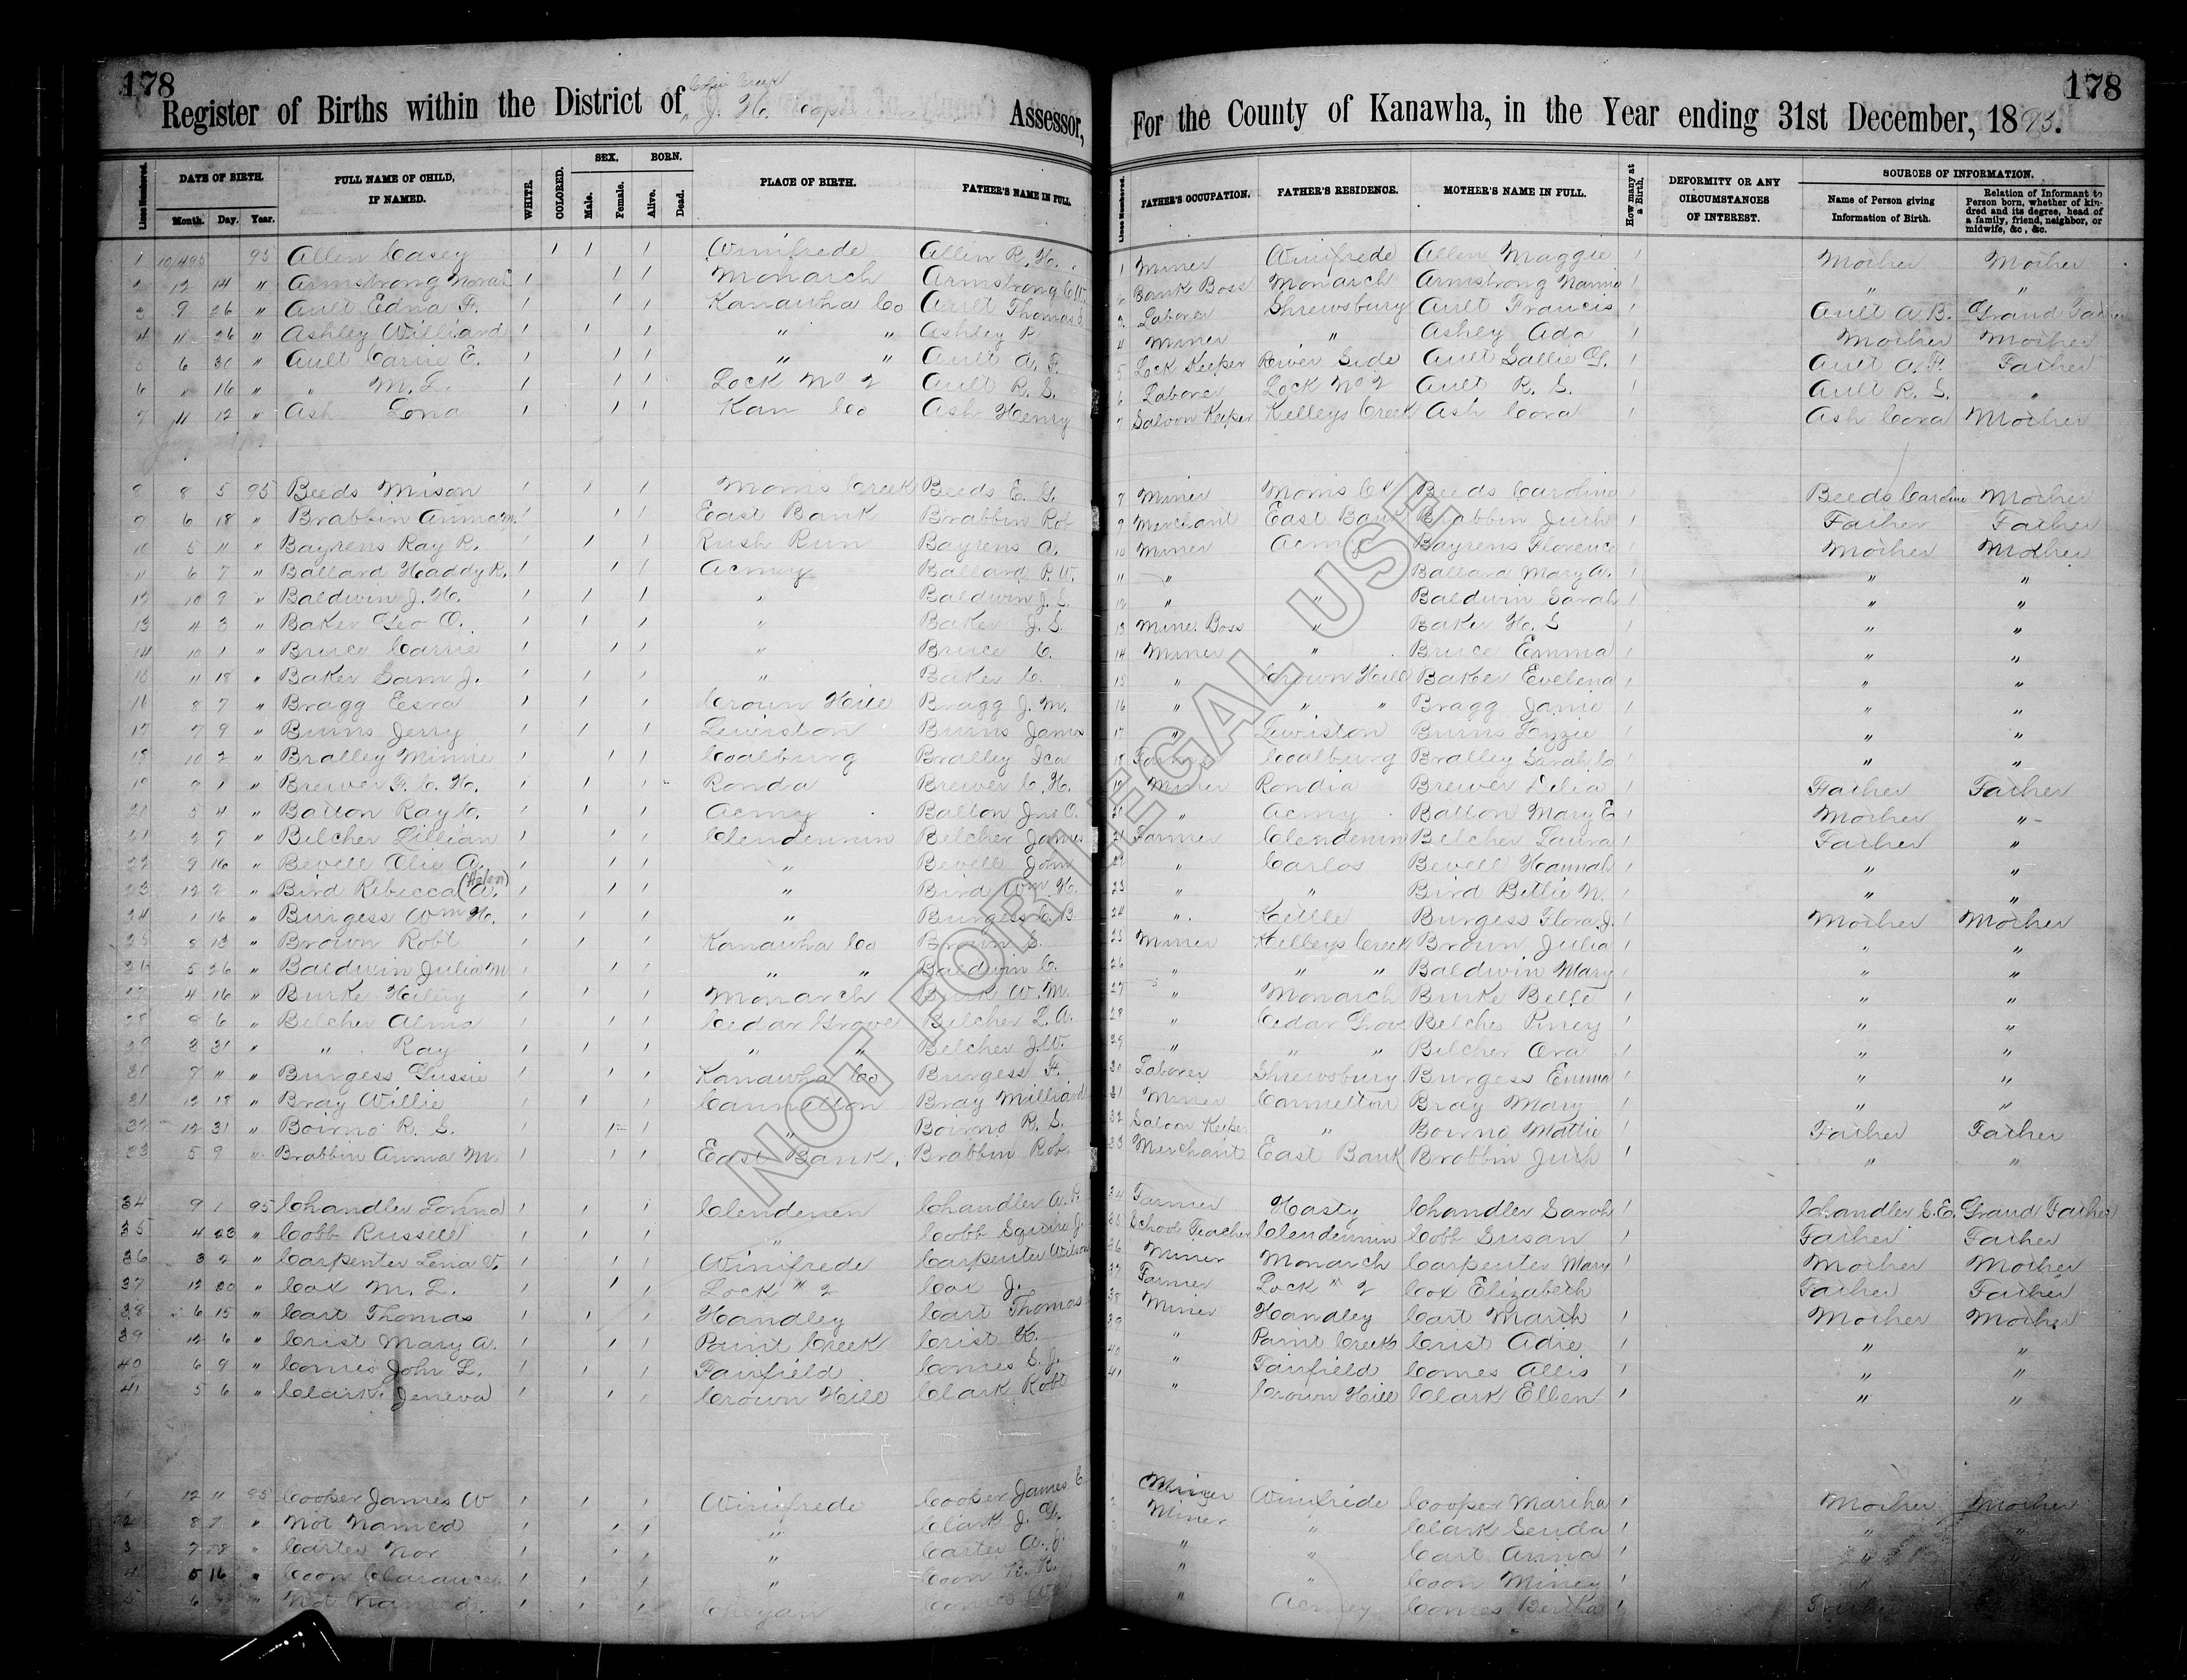 178
178
Register of Births within the District of J. H. Assessor,
For the County of Kanawha, in the Year ending 31st December, 1895.
Lines Numbered. DATE OF BIRTH. Month. Day. Year. FULL NAME OF CHILD, IF NAMED. WHITE. COLORED. SEX. Male. Female. BORN. Alive. Dead. PLACE OF BIRTH. FATHER'S NAME IN FULL.
Lines Numbered. FATHER'S OCCUPATION. FATHER'S RESIDENCE. MOTHER'S NAME IN FULL. How many at a Birth. DEFORMITY OR ANY CIRCUMSTANCES OF INTEREST. SOURCES OF INFORMATION. Name of Person giving Information of Birth. Relation of Informant to Person born, whether of kindred and its degree, head of a family, friend, neighbor, or midwife, &c., &c.
1 95 Allen Casey 1 1 1 Winifrede Allen R. H. 1 Miner Winifrede Allen Maggie 1 Mother Mother
2 12 14 " Armstrong Norah 1 1 1 Monarch Armstrong C. W. 2 Bank Boss Monarch Armstrong Nannie 1 " "
3 9 26 " Ault Edna F. 1 1 1 Kanawha Co Ault Thomas S. 3 Laborer Shrewsbury Ault Francis 1 Ault A. B. Grand Father
4 11 26 " Ashley Williard 1 1 1 " " Ashley R 4 Miner " Ashley Ada 1 Mother Mother
5 6 30 " Ault Carrie E. 1 1 1 " " Ault A. F. 5 Lock Keeper River Side Ault Sallie G. 1 Ault A. F. Father
6 " 16 " " M. L. 1 1 1 Lock No 2 Ault R. S. 6 Laborer Lock No 2 Ault R. S. 1 Ault R. S. "
7 11 12 " Ash Lona 1 1 1 Kan Co Ash Henry 7 Saloon Keeper Kelleys Creek Ash Cora 1 Ash Cora Mother
8 8 5 95 Beeds Mison 1 1 1 Morris Creek Beeds E. G. 8 Miner Morris Ck Beeds Caroline 1 Beeds Caroline Mother
9 6 18 " Brabbin Anna M. 1 1 1 East Bank Brabbin Rob 9 Merchant East Bank Brabbin Juth 1 Father Father
10 5 11 " Bayrens Ray R. 1 1 1 Rush Run Bayrens A. 10 Miner Acmy Bayrens Florence 1 Mother Mother
11 6 7 " Ballard Haddy R. 1 1 1 Acmey Ballard P. W. 11 " Ballard Mary A. 1 " "
12 10 9 " Baldwin J. H. 1 1 1 " Baldwin J. S. 12 " " Baldwin Sarah 1 " "
13 4 3 " Baker Geo O. 1 1 1 " Baker J. S. 13 Mine Boss " Baker H. S 1 " "
14 10 1 " Bruce Carrie 1 1 1 " Bruce C. 14 Miner " Bruce Emma 1 " "
15 11 18 " Baker Sam J. 1 1 1 " Baker C. 15 " Crown Hill Baker Evelena 1 " "
16 8 7 " Bragg Esra 1 1 1 Crown Hill Bragg J. M. 16 " " " Bragg Janie 1 " "
17 7 9 " Burns Jerry 1 1 1 Lewiston Burns James 17 " Lewiston Burns Lizzie 1 " "
18 10 2 " Bralley Minnie 1 1 1 Coalburg Bralley Ica 18 Farmer Coalburg Bralley Sarah C 1 " "
19 9 1 " Brewer F. C. H. 1 1 1 Ronda Brewer C. H. 19 Miner Rondia Brewer Delia 1 Father Father
20 5 4 " Batton Ray C. 1 1 1 Acmy Batton Jno O. 20 " Acmy Batton Mary E 1 Mother "
21 2 7 " Belcher Lillian 1 1 1 Clendennin Belcher James 21 Farmer Clendenin Belcher Laura 1 Father "
22 9 16 " Bevell Olie A. 1 1 1 " Bevell John 22 " Carlos Bevell Hannah 1 " "
23 12 2 " Bird Rebecca A. (Helen) 1 1 1 " Bird Wm H. 23 " " Bird Bettie N. 1 " "
24 1 16 " Burgess Wm H. 1 1 1 " Burgess C. B. 24 " Kettle Burgess Flora J. 1 Mother Mother
25 8 13 " Brown Robt 1 1 1 Kanawha Co Brown S. 25 Miner Kelleys Creek Brown Julia 1 " "
26 5 26 " Baldwin Julia M 1 1 1 " " Baldwin C. 26 " " " Baldwin Mary 1 " "
27 4 16 " Burke Hilley 1 1 1 Monarch Burk W. M. 27 " Monarch Burke Belle 1 " "
28 8 6 " Belcher Alma 1 1 1 Cedar Grove Belcher L. A. 28 " Cedar Grove Belcher Piney 1 " "
29 3 31 " " Ray 1 1 1 " " Belcher J. W. 29 " " " Belcher Ora 1 " "
30 7 " " Burgess Gussie 1 1 1 Kanawha Co Burgess F. 30 Laborer Shrewsbury Burgess Emma 1 " "
31 12 18 " Bray Willie 1 1 1 Cannelton Bray Milliard 31 Miner Cannelton Bray Mary 1 " "
32 12 31 " Boirno R. S. 1 1 1 " Boirno R. S. 32 Saloon Keeper " Boirno Mattie 1 Father Father
33 5 9 " Brabbin Anna M. 1 1 1 East Bank Brabbin Rob. 33 Merchant East Bank Brabbin Juth 1 " "
34 9 1 95 Chandler 1 1 1 Clendenen Chandler A. 34 Farmer Hasty Chandler Sarah 1 Chandler S. E. Grand Father
35 4 23 " Cobb Russell 1 1 1 " Cobb Squire J. 35 School Teacher Clendennin Cobb Susan 1 Father Father
36 3 2 " Carpenter Lena V. 1 1 1 Winifrede Carpenter Wilson 36 Miner Monarch Carpenter Mary 1 Mother Mother
37 12 20 " Cox M. L. 1 1 1 Lock " 2 Cox J. 37 Farmer Lock " 2 Cox Elizabeth Father Father
38 6 15 " Cart Thomas 1 1 1 Handley Cart Thomas 38 Miner Handley Cart Marth 1 Mother Mother
39 12 6 " Crist Mary A. 1 1 1 Paint Creek Crist K. 39 " Paint Creek Crist Adie 1 " "
40 6 9 " Comes John L. 1 1 1 Fairfield Comes S. J. 40 " Fairfield Comes Allis 1 " "
41 5 6 " Clark Jeneva 1 1 1 Crown Hill Clark Robt 41 " Crown Hill Clark Ellen 1 " "
1 12 11 95 Cooper James W 1 1 1 Winifrede Cooper James C Miner Winifride Cooper Martha 1 Mother Mother
2 8 7 " Not Named 1 1 1 " Clark J. G. Miner " Clark Senda 1 " "
3 7 28 " Carter Nor 1 1 1 " Carter A. " " Cart Anna 1 " "
4 5 16 " Coon Clarance 1 1 1 " Coon B. B. " " Coon Miney 1 "
5 6 " Not Named 1 1 1 Chyan Comes " Acmey Comes Bertha 1
NOT FOR LEGAL USE